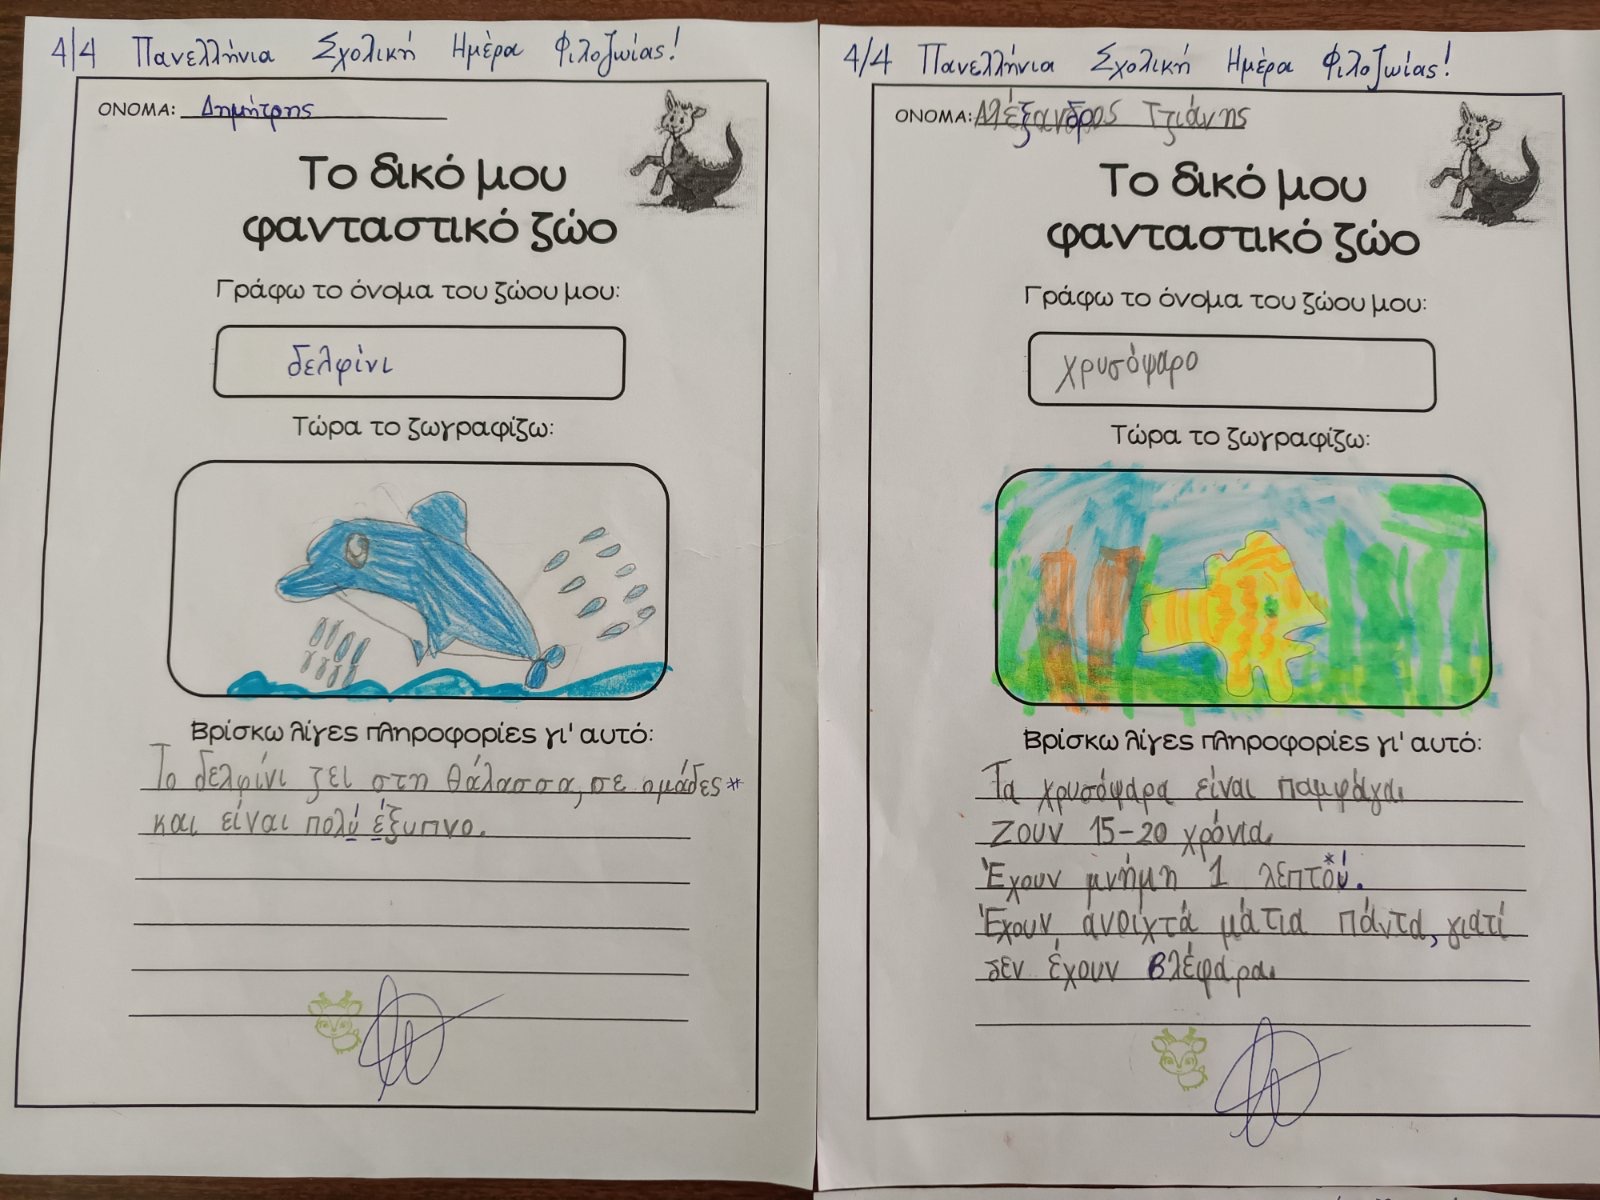 4/4 Πανελλήνια Σχολική Ημέρα Φιλοζωίας!
ΟΝΟΜΑ: Δημήτρης
Το δικό μου
φανταστικό ζώο
Γράφω το όνομα του ζώου μου:
δελφίνι
Τώρα το ζωγραφίζω:
Βρίσκω λίγες πληροφορίες γι' αυτό:
Το δελφίνι ζει στη θάλασσα, σε ομάδες*
και είναι πολύ έξυπνο.
4/4 Πανελλήνια Σχολική Ημέρα Φιλοζωίας!
ΟΝΟΜΑ: Αλέξανδρος Τζιάνης
Το δικό μου
φανταστικό ζώο
Γράφω το όνομα του ζώου μου:
χρυσόψαρο
Τώρα το ζωγραφίζω:
Βρίσκω λίγες πληροφορίες γι' αυτό:
Τα χρυσόψαρα είναι παμφάγα.
Ζουν 15-20 χρόνια.
Έχουν μνήμη 1 λεπτού*.
Έχουν ανοιχτά μάτια πάντα, γιατί
δεν έχουν βλέφαρα.